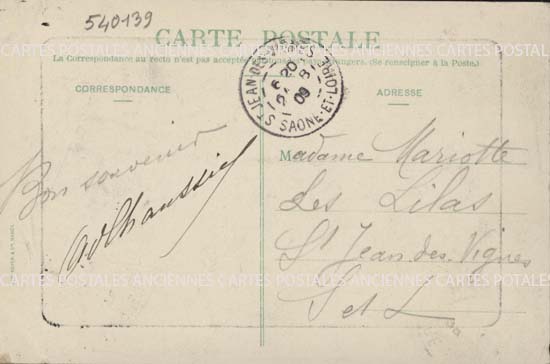 540139
CARTE POSTALE
La Correspondance au recto n'est pas acceptée par tous les pays étrangers. (Se renseigner à la Poste.)
CORRESPONDANCE
ADRESSE
ST JEAN DES VIGNES
6 20
8
09
SAONE-ET-LOIRE
Bon souvenir
Madame Mariotte
Les Lilas
St Jean des Vignes
S et L
CARTES POSTALES ANCIENNES CARTES POSTALES ANCIENNES CARTES POSTALES
CARTES POSTALES ANCIENNES CARTES POSTALES ANCIENNES CARTES POSTALES